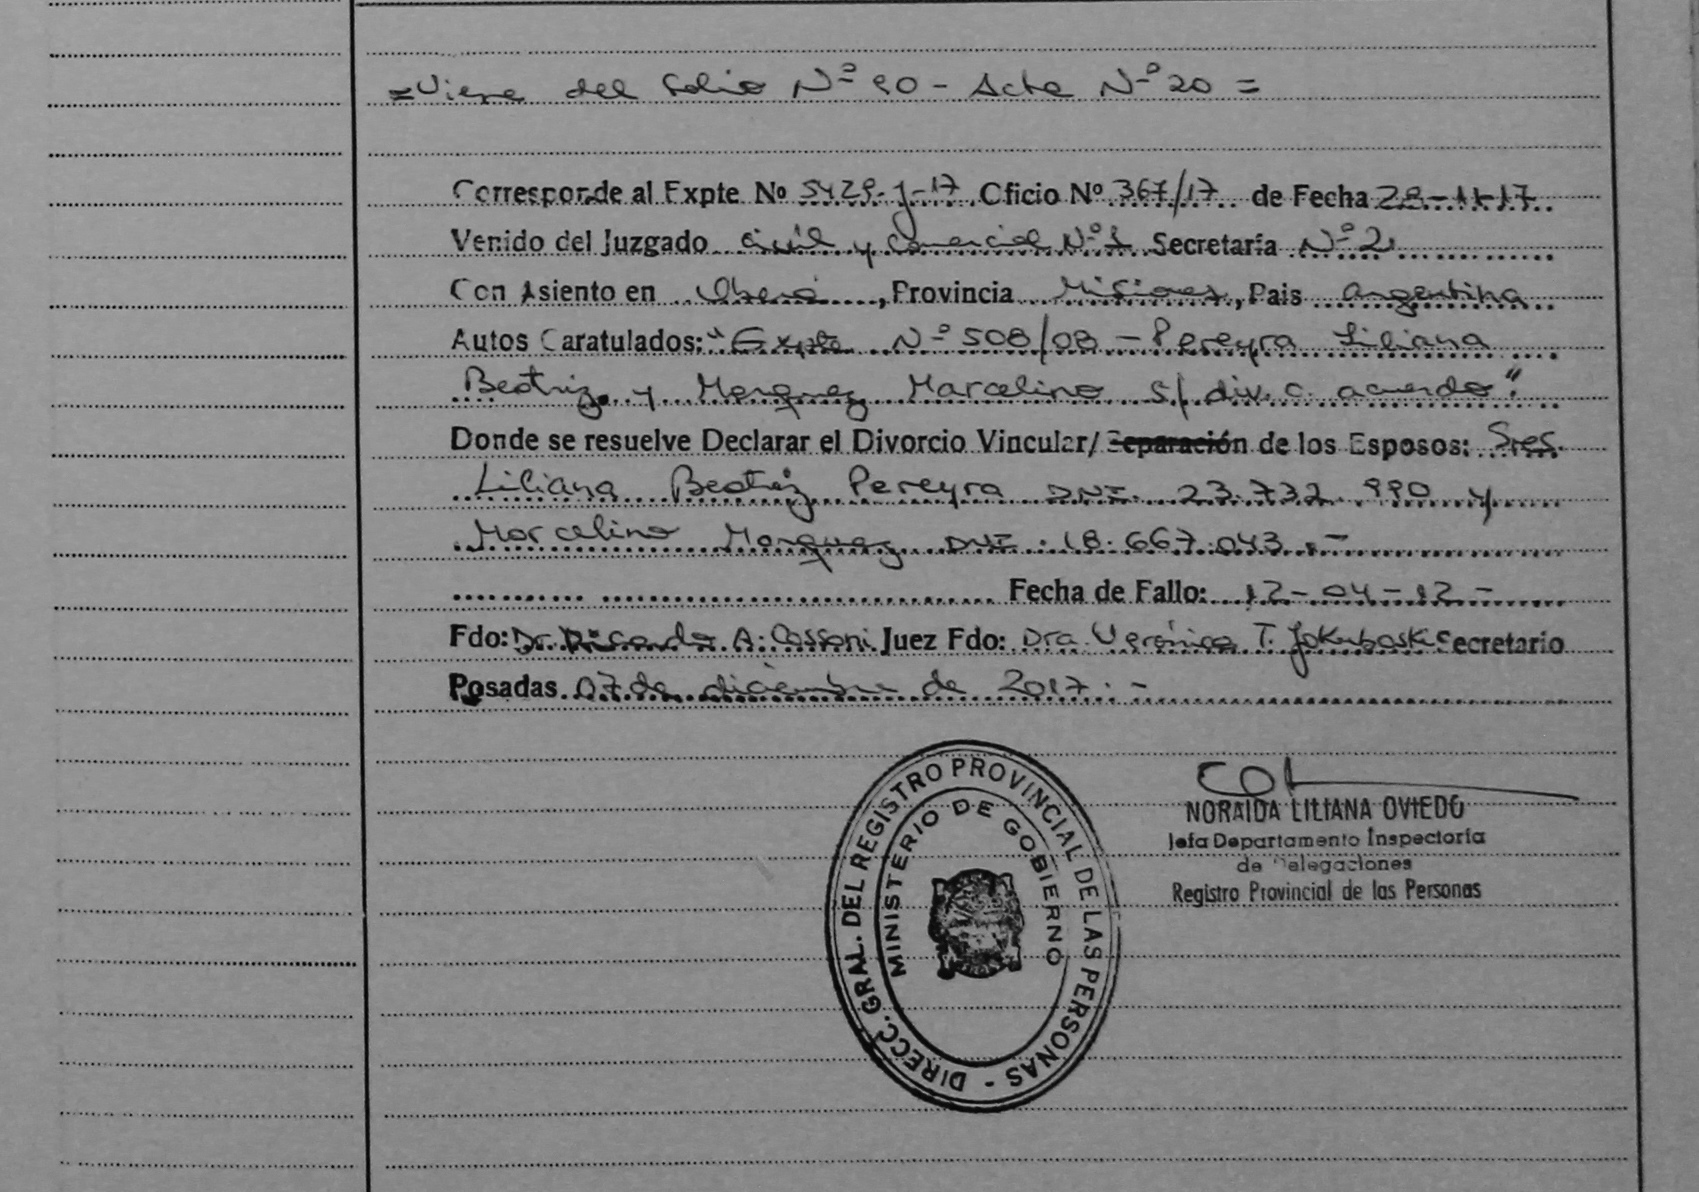 =Viene del Folio Nº 90 - Acta Nº 20 =
Corresponde al Expte Nº 5429-J-17 Oficio Nº 367/17 de Fecha 28-11-17
Venido del Juzgado Civil y Comercial Nº 1 Secretaría Nº 2
Con Asiento en Oberá, Provincia Misiones, Pais Argentina
Autos Caratulados: "Expte Nº 508/08 - Pereyra Liliana
Beatriz y Marquez Marcelino s/ div. c. acuerdo"
Donde se resuelve Declarar el Divorcio Vincular/Separación de los Esposos: Sres.
Liliana Beatriz Pereyra DNI. 23.732.990 y
Marcelino Marquez DNI. 18.667.043.-
Fecha de Fallo: 12-04-12-
Fdo: Dr. Ricardo A. Cassoni Juez Fdo: Dra. Verónica T. Jakuboski Secretario
Posadas 07 de diciembre de 2017.-
DIRECC. GRAL. DEL REGISTRO PROVINCIAL DE LAS PERSONAS -
MINISTERIO DE GOBIERNO
NORAIDA LILIANA OVIEDO
Jefa Departamento Inspectoría
de Delegaciones
Registro Provincial de las Personas